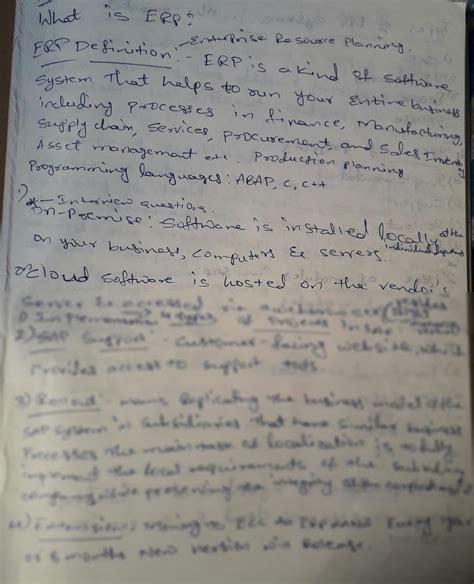 What is ERP?
ERP Definition:- Enterprise Resource Planning.
- ERP is a kind of software
system That helps to run your Entire business
including processes in finance, Manufacturing,
Supply chain, Services, procurement, and Sales, Inventory
Asset management etc. Production planning
Programming languages: ABAP, C, C++
1) *- Interview questions.
On-Premise: Software is installed locally at the
on your business, computers & servers.
2) Cloud Software is hosted on the vendor's
Server & accessed via a
1) Implementation types of Projects in SAP
2) SAP Support - Customer-facing website, which
Provides access to support tools.
3) Rollout - means Replicating the business model of the
SAP system in Subsidiaries That have similar business
Processes The main task of localization is to fully
implement the local requirements of the Subsidiary
company while preserving the integrity of the
4) Extension: Moving to ECC to Every year
or 6 months New Version will Release.